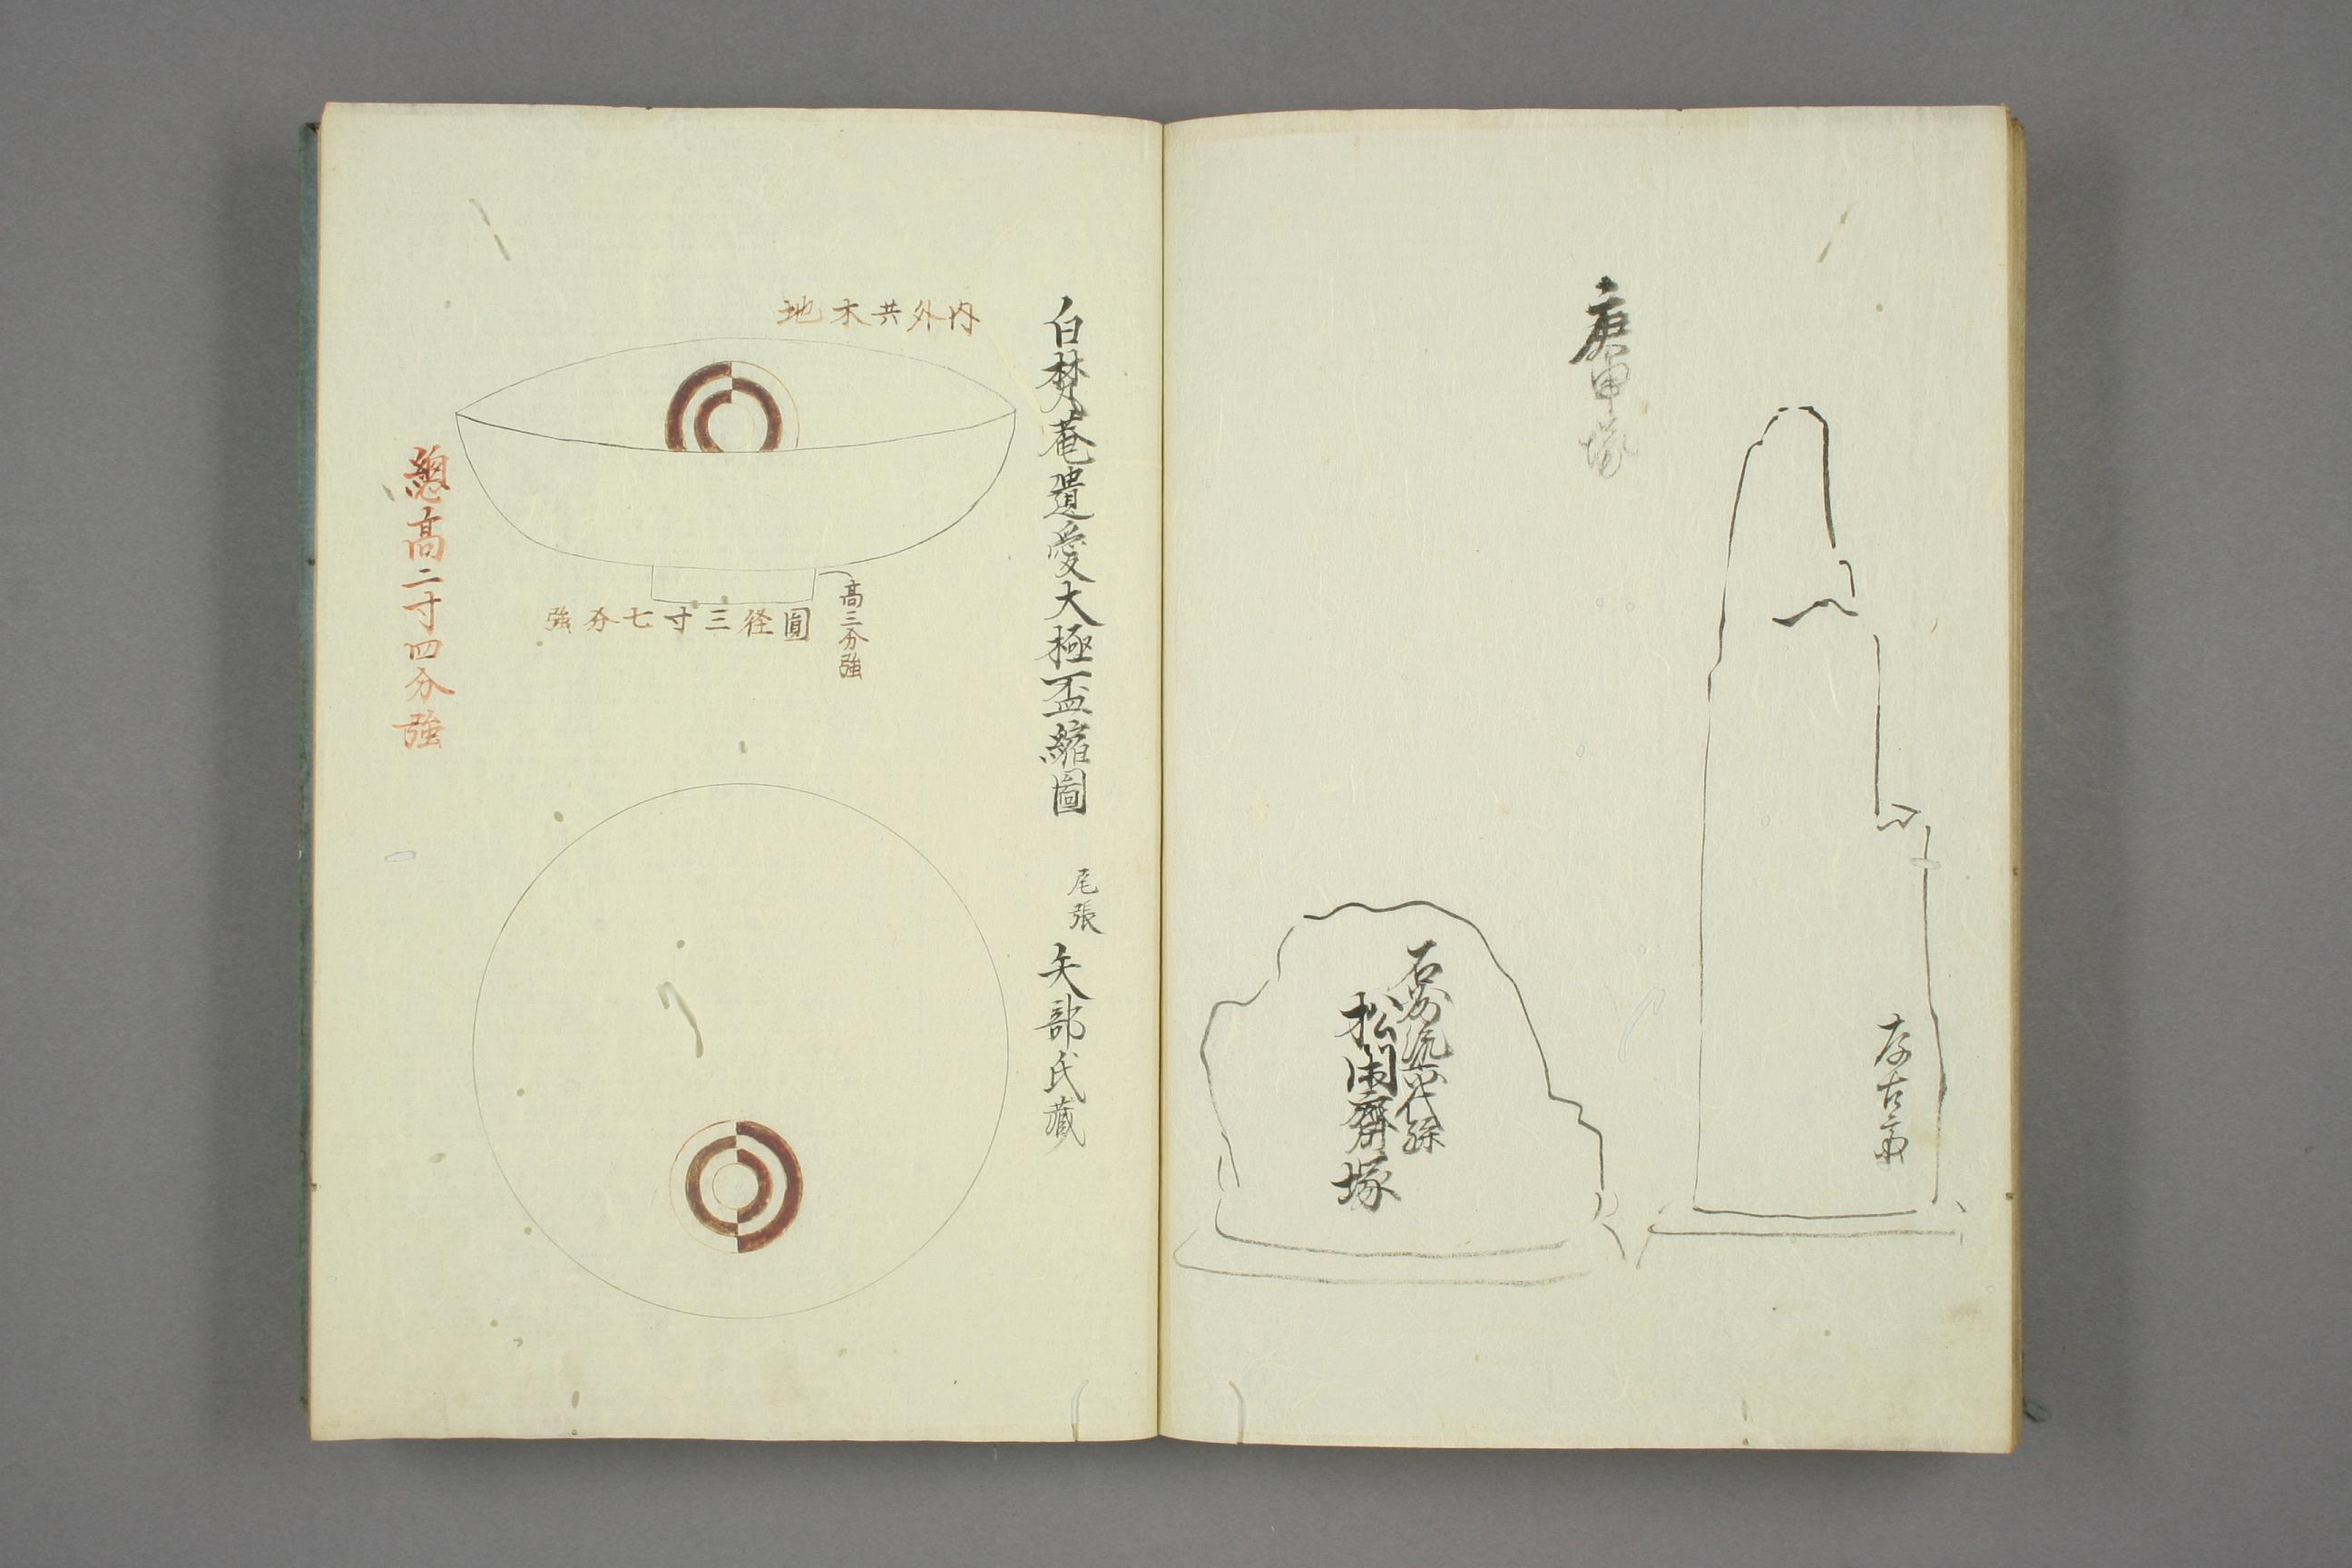 庚申塚
存古斎
石州流六代孫
松因齋塚
白梵菴遺愛大極盃縮圖
尾張
矢部氏藏
内外共木地
高三分強
圓径三寸七分強
總高二寸四分強